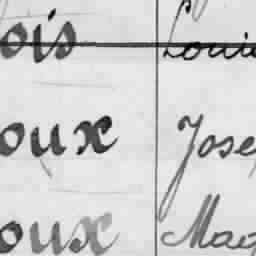 ois Loui
oux Jose
oux Mag